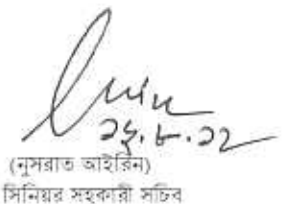 ২৫.৮.২২
(নুসরাত আইরিন)
সিনিয়র সহকারী সচিব